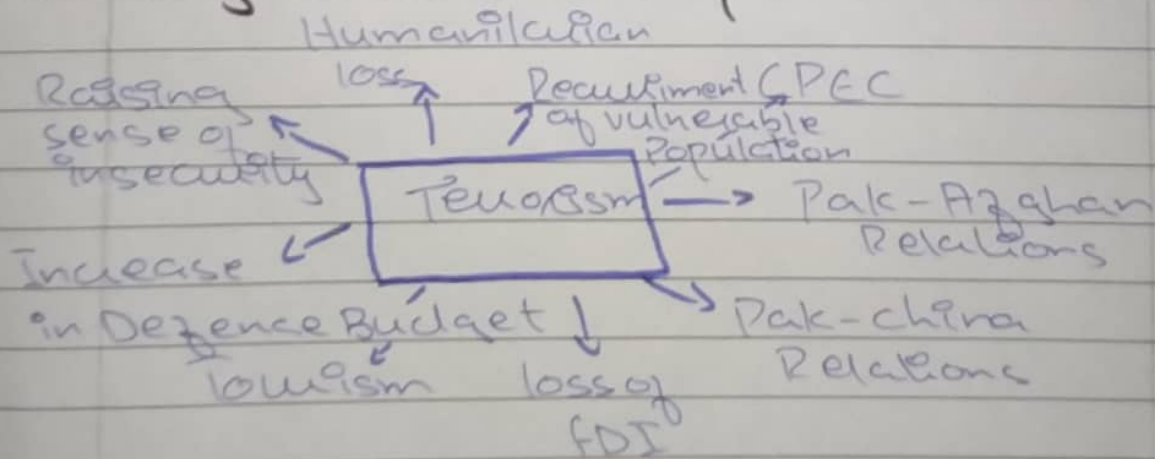 Humanilation
loss
Raising
sense of
insecurity
Recruitment CPEC
of vulnerable
Population
Terrorism
Pak-Afghan
Relations
Increase
in Defence Budget
Pak-china
Relations
Tourism
loss of
FDI